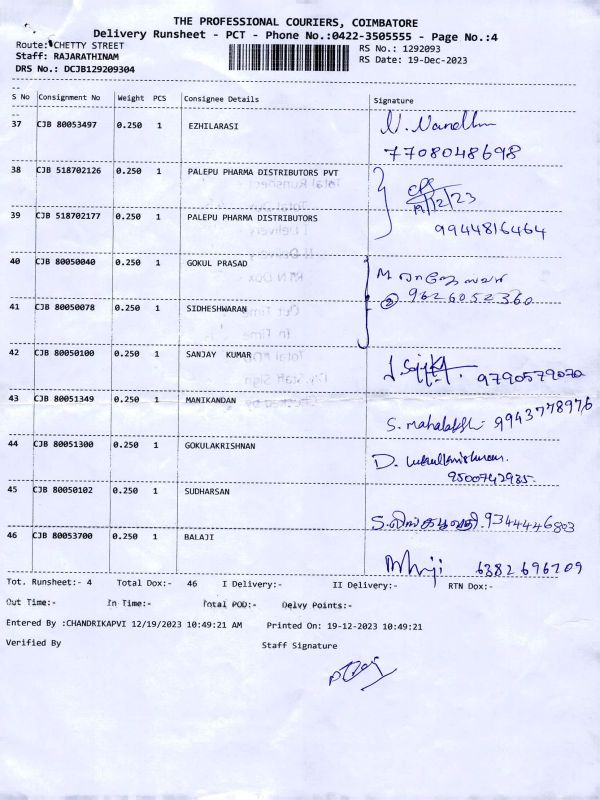 THE PROFESSIONAL COURIERS, COIMBATORE
Delivery Runsheet - PCT - Phone No.:0422-3505555 - Page No.:4
Route: CHETTY STREET
Staff: RAJARATHINAM
DRS No.: DCJB129209304
RS No.: 1292093
RS Date: 19-Dec-2023
S No Consignment No Weight PCS Consignee Details Signature
37 CJB 80053497 0.250 1 EZHILARASI N. Nandhu
7708048698
38 CJB 518702126 0.250 1 PALEPU PHARMA DISTRIBUTORS PVT
19/12/23
39 CJB 518702177 0.250 1 PALEPU PHARMA DISTRIBUTORS
9944816464
40 CJB 80050040 0.250 1 GOKUL PRASAD M
9626052360
41 CJB 80050078 0.250 1 SIDHESHWARAN
42 CJB 80050100 0.250 1 SANJAY KUMAR
9790579070
43 CJB 80051349 0.250 1 MANIKANDAN
S. mahalakshmi 9943778976
44 CJB 80051300 0.250 1 GOKULAKRISHNAN
D.
9500742935.
45 CJB 80050102 0.250 1 SUDHARSAN
S. 9344446803
46 CJB 80053700 0.250 1 BALAJI
6382696209
Tot. Runsheet:- 4 Total Dox:- 46 I Delivery:- II Delivery:- RTN Dox:-
Out Time:- In Time:- Total POD:- Delvy Points:-
Entered By :CHANDRIKAPVI 12/19/2023 10:49:21 AM Printed On: 19-12-2023 10:49:21
Verified By Staff Signature